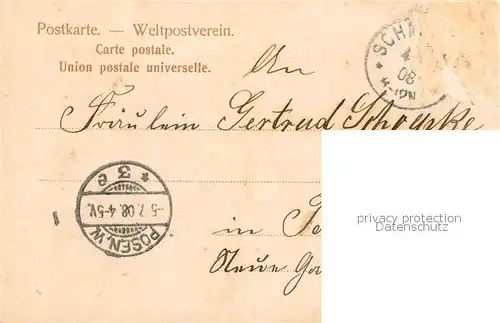 Postkarte. — Weltpostverein.
Carte postale.
Union postale universelle.
SCH
08
An
Fräulein Gertrud Schoepke
* 3 e
-5.7.08.4-5V.
POSEN.W.
1
privacy protection
Datenschutz
in
Neue